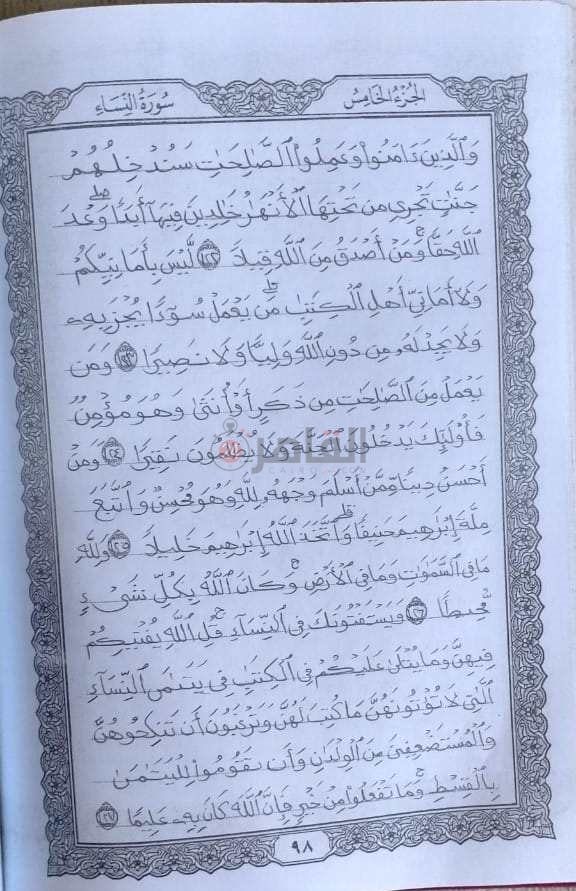 الجزء الخامس
سورة النساء
وَالَّذِينَ ءَامَنُوا وَعَمِلُوا الصَّالِحَاتِ سَنُدْخِلُهُمْ
جَنَّاتٍ تَجْرِي مِن تَحْتِهَا الْأَنْهَارُ خَالِدِينَ فِيهَا أَبَدًا وَعْدَ
اللَّهِ حَقًّا وَمَنْ أَصْدَقُ مِنَ اللَّهِ قِيلًا ١٢٢ لَّيْسَ بِأَمَانِيِّكُمْ
وَلَا أَمَانِيِّ أَهْلِ الْكِتَابِ مَن يَعْمَلْ سُوءًا يُجْزَ بِهِ
وَلَا يَجِدْ لَهُ مِن دُونِ اللَّهِ وَلِيًّا وَلَا نَصِيرًا ١٢٣ وَمَن
يَعْمَلْ مِنَ الصَّالِحَاتِ مِن ذَكَرٍ أَوْ أُنثَىٰ وَهُوَ مُؤْمِنٌ
فَأُولَٰئِكَ يَدْخُلُونَ الْجَنَّةَ وَلَا يُظْلَمُونَ نَقِيرًا ١٢٤ وَمَنْ
أَحْسَنُ دِينًا مِّمَّنْ أَسْلَمَ وَجْهَهُ لِلَّهِ وَهُوَ مُحْسِنٌ وَاتَّبَعَ
مِلَّةَ إِبْرَاهِيمَ حَنِيفًا وَاتَّخَذَ اللَّهُ إِبْرَاهِيمَ خَلِيلًا ١٢٥ وَلِلَّهِ
مَا فِي السَّمَاوَاتِ وَمَا فِي الْأَرْضِ وَكَانَ اللَّهُ بِكُلِّ شَيْءٍ
مُّحِيطًا ١٢٦ وَيَسْتَفْتُونَكَ فِي النِّسَاءِ قُلِ اللَّهُ يُفْتِيكُمْ
فِيهِنَّ وَمَا يُتْلَىٰ عَلَيْكُمْ فِي الْكِتَابِ فِي يَتَامَى النِّسَاءِ
الَّتِي لَا تُؤْتُونَهُنَّ مَا كُتِبَ لَهُنَّ وَتَرْغَبُونَ أَن تَنكِحُوهُنَّ
وَالْمُسْتَضْعَفِينَ مِنَ الْوِلْدَانِ وَأَن تَقُومُوا لِلْيَتَامَىٰ
بِالْقِسْطِ وَمَا تَفْعَلُوا مِنْ خَيْرٍ فَإِنَّ اللَّهَ كَانَ بِهِ عَلِيمًا ١٢٧
٩٨
القاهرة